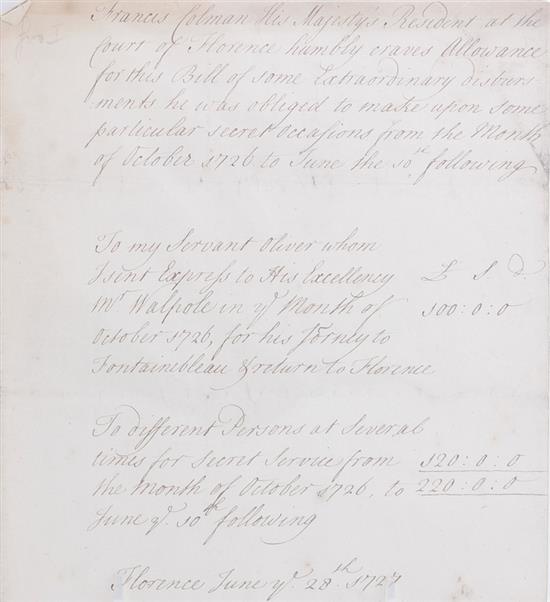 Francis Colman His Majesty's Resident at the
Court of Florence humbly craves Allowance
for this Bill of some Extraordinary disburs-
-ments he was obliged to make upon some
particular secret Occasions from the Month
of October 1726 to June the 10th following
To my Servant Oliver whom
I sent Express to His Excellency £ S d.
Mr Walpole in ye Month of 100:0:0
October 1726, for his Jorney to
Fontainebleau & return to Florence
To different Persons at Several
times for Secret Service from 120:0:0
the Month of October 1726, to 220:0:0
June ye 10th following
Florence June ye 28th 1727